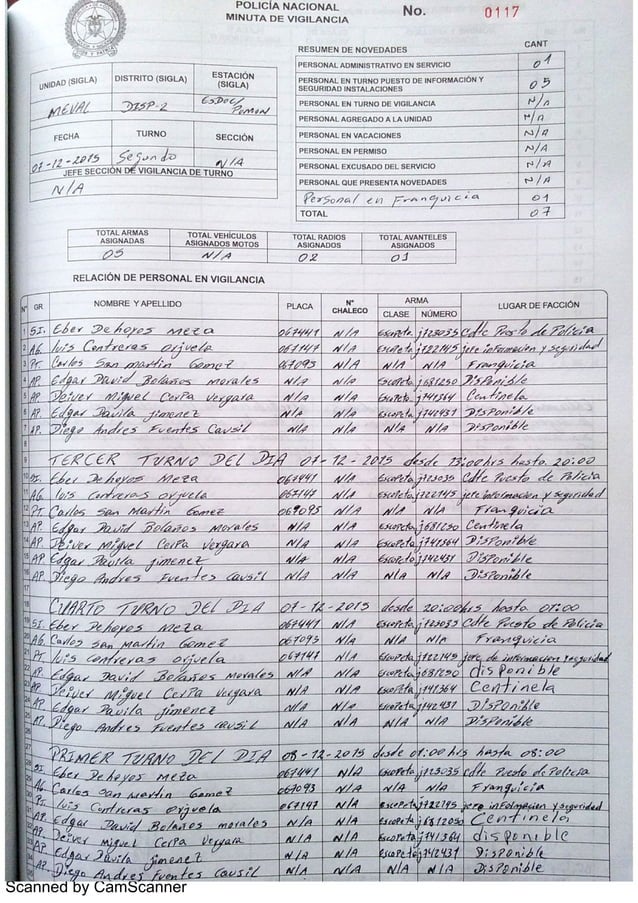 POLICÍA NACIONAL
MINUTA DE VIGILANCIA
No. 0117
RESUMEN DE NOVEDADES CANT
PERSONAL ADMINISTRATIVO EN SERVICIO 01
PERSONAL EN TURNO PUESTO DE INFORMACIÓN Y SEGURIDAD INSTALACIONES 05
PERSONAL EN TURNO DE VIGILANCIA N/A
PERSONAL AGREGADO A LA UNIDAD N/A
PERSONAL EN VACACIONES N/A
PERSONAL EN PERMISO N/A
PERSONAL EXCUSADO DEL SERVICIO N/A
PERSONAL QUE PRESENTA NOVEDADES N/A
Personal en Franquicia 01
TOTAL 07
UNIDAD (SIGLA) DISTRITO (SIGLA) ESTACIÓN (SIGLA)
MEVAL DISP-2
FECHA TURNO SECCIÓN
07-12-2015 Segundo N/A
JEFE SECCIÓN DE VIGILANCIA DE TURNO
N/A
TOTAL ARMAS ASIGNADAS TOTAL VEHÍCULOS ASIGNADOS MOTOS TOTAL RADIOS ASIGNADOS TOTAL AVANTELES ASIGNADOS
05 N/A 02 01
RELACIÓN DE PERSONAL EN VIGILANCIA
N° GR NOMBRE Y APELLIDO PLACA N° CHALECO ARMA CLASE NÚMERO LUGAR DE FACCIÓN
1 SI. Eber Dehoyos Meza 067441 N/A Escopeta j123035 Cdte Puesto de Policia
2 AG. luis Contreras orjuela 067147 N/A Escopeta j122145 jere información y seguridad
3 PT. Carlos San martin Gomez 067093 N/A N/A N/A Franquicia
4 AP. Edgar David Bolaños morales N/A N/A Escopeta j681250 Disponible
5 AP. Deiver Miguel Cerpa vergara N/A N/A Escopeta j741364 Centinela
6 AP. Edgar Davila jimenez N/A N/A Escopeta j742431 Disponible
7 AP. Diego Andres Fuentes Causil N/A N/A N/A N/A Disponible
8
9 TERCER TURNO DEL DIA 07-12-2015 desde 13:00 hrs hasta 20:00
10 SI. Eber Dehoyos Meza 067441 N/A Escopeta j123035 Cdte Puesto de Policia
11 AG. luis Contreras orjuela 067147 N/A Escopeta j122145 jere informacion y seguridad
12 PT. Carlos San martin Gomez 067093 N/A N/A N/A Franquicia
13 AP. Edgar David Bolaños Morales N/A N/A Escopeta j681250 Centinela
14 AP. Deiver Miguel Cerpa vergara N/A N/A Escopeta j741364 Disponible
15 AP. Edgar Davila jimenez N/A N/A Escopeta j742431 Disponible
16 AP. Diego Andres Fuentes causil N/A N/A N/A N/A Disponible
18 CUARTO TURNO DEL DIA 07-12-2015 desde 20:00 hrs hasta 01:00
19 SI. Eber Dehoyos Meza 067441 N/A Escopeta j123035 Cdte Puesto de Policia
20 AG. Carlos san martin Gomez 067093 N/A N/A N/A Franquicia
21 PT. luis contreras orjuela 067147 N/A Escopeta j122145 jere de informacion seguridad
22 AP. Edgar David Bolaños Morales N/A N/A Escopeta j681250 disponible
AP. Deiver Miguel Cerpa Vergara N/A N/A Escopeta j741364 Centinela
AP. Edgar Davila jimenez N/A N/A Escopeta j742431 Disponible
25 AP. Diego Andres Fuentes causil N/A N/A N/A N/A Disponible
27 PRIMER TURNO DEL DIA 08-12-2015 desde 01:00 hrs hasta 08:00
SI. Eber Dehoyos Meza 067441 N/A Escopeta j123035 cdte Puesto de Policia
AG. Carlos san martin Gomez 067093 N/A N/A N/A Franquicia
PT. luis Contreras orjuela 067147 N/A escopeta j122145 jere informacion y seguridad
AP. Edgard David Bolaños morales N/A N/A Escopeta j681250 Centinela
AP. Deiver miguel Cerpa Vergara N/A N/A Escopeta j741364 disponible
AP. Edgar Davila jimenez N/A N/A Escopeta j742431 Disponible
AP. Diego Andres Fuentes causil N/A N/A N/A N/A Disponible
Scanned by CamScanner